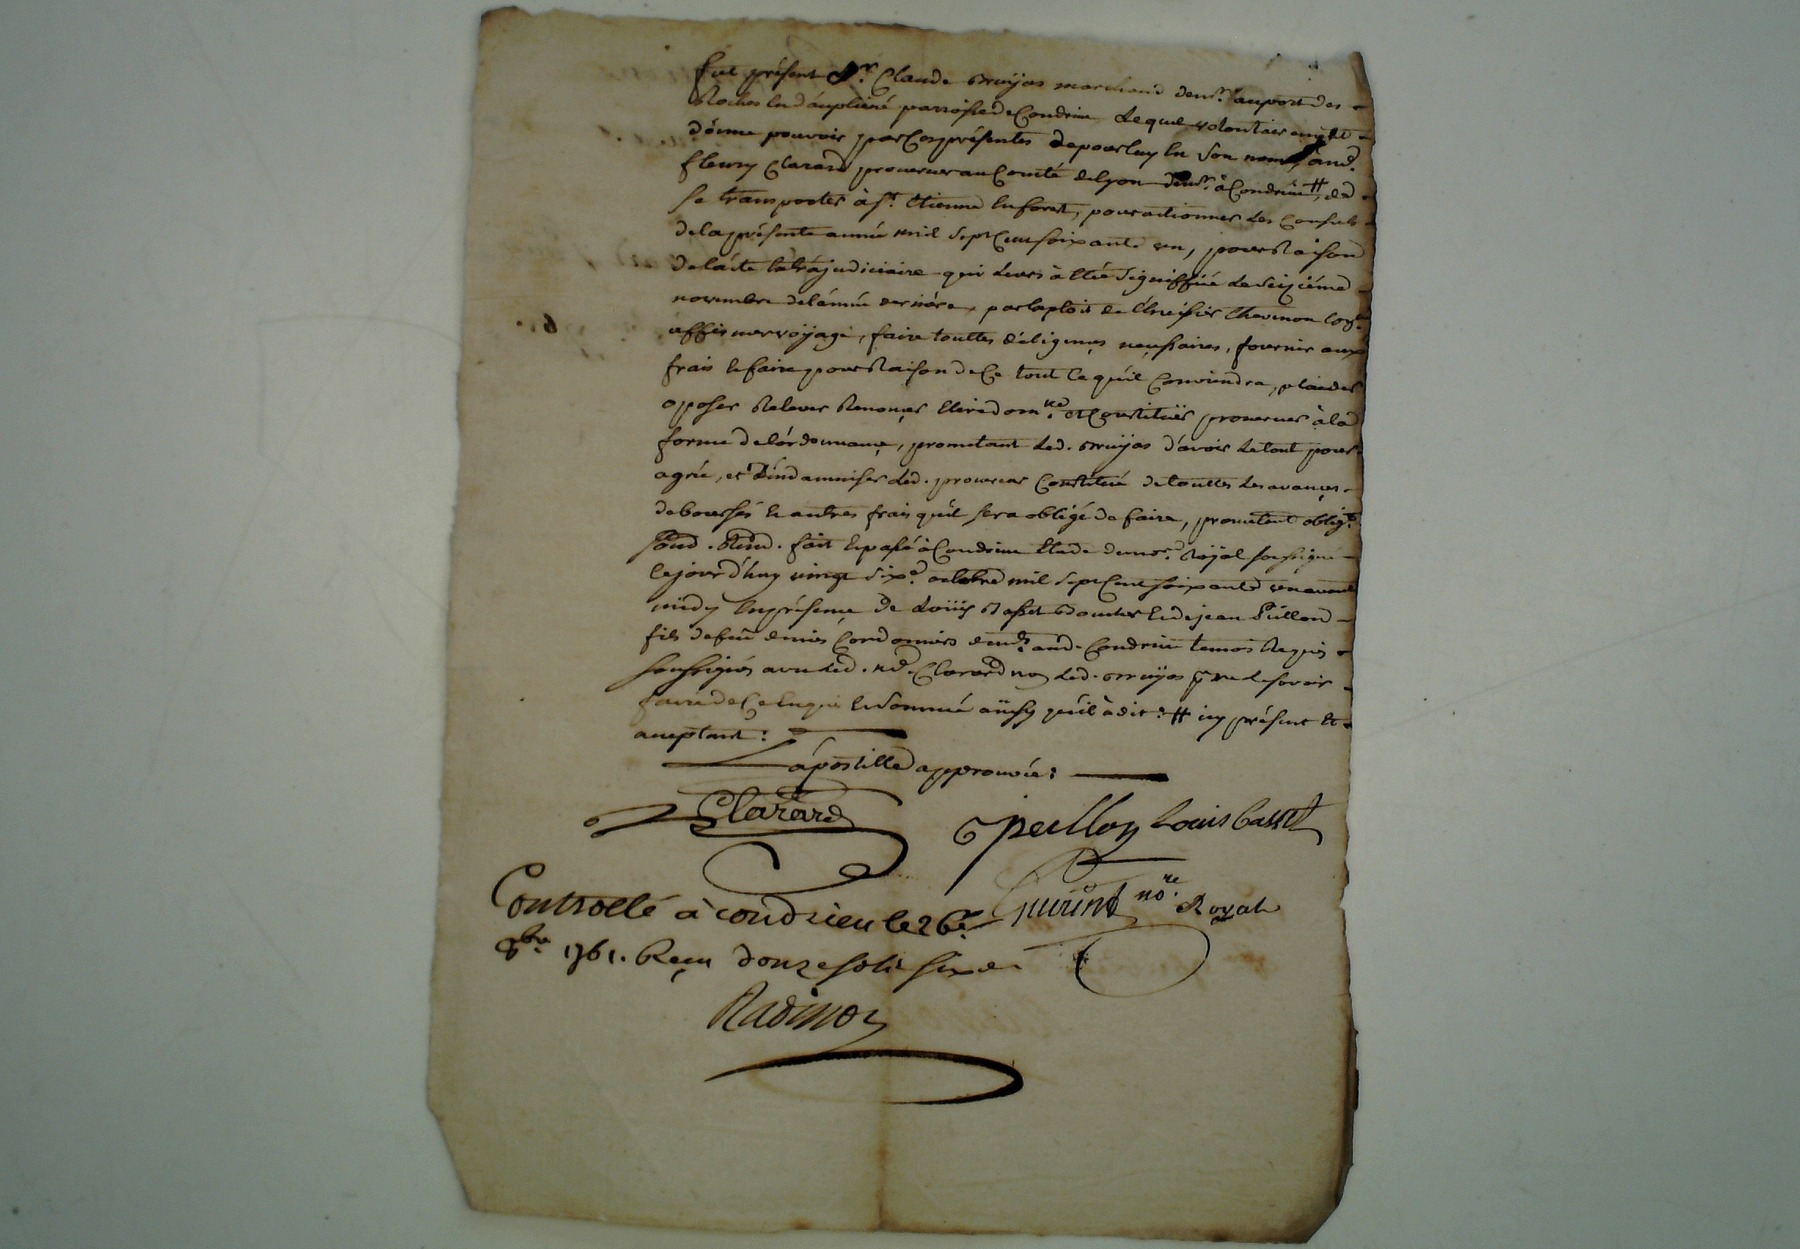 fut présent Sr. Claude Bruÿas marchand demt. au port des
Roches en dauphiné parroisse de Condrieu Lequel volontairemt. et
dónne pouvoir par Ces présentes de pour luy en Son nom à md.
fleury Clarard procureur au Comté de Lyon demt. à Condrieu # de
se transporter à st. Etienne en forest, pour actionner Les Consuls
de la présente année mil Sept Cent soixante un, pour Raison
de l'acte Extrajudiciaire qui Leurs à êté Signiffiée Le Seiziéme
novembre de l'année derniére, par Exploit de L'huissier Thevenon
affirmer voÿage, faire touttes déligences neçessaires, fournir aux
frais et faire pour Raison de Ce tout Ce qu'il Conviendra, plaider
oposer Relever Renonçer Elire domlle. et Constituër procureur à la
forme de l'órdonnance, promettant Led. Bruÿas d'avoir Le tout pour
agrée, et d'indamniser Led. procureur Constitué de touttes Les avançes
deboursés et autres frais qu'il sera obligé de faire, promettant oblig.
soud. Rend. fait et passé à Condrieu Etude du nore. Roÿal soussigné
Cejourd'huy vingt Sixe. octobre mil Sept Cent soixante un avant
midy En présençe de Loüis Basset et de jean Peillon
fils de feu denis Cordonnier demts. aud. Condrieu temoins Requis
soussignés avec Led. Me. Clarard non Led. Bruÿas pr. ne le savoir
faire de Ce Enquis et Sommé aïnsy qu'il à dit: # icy présent et
acceptant:
L'apostille approuvée:
Clarard
Peillon Louis Basset
Controllé à condrieu le 26e. nore. Royal
8bre. 1761. Reçu douze sols six d.